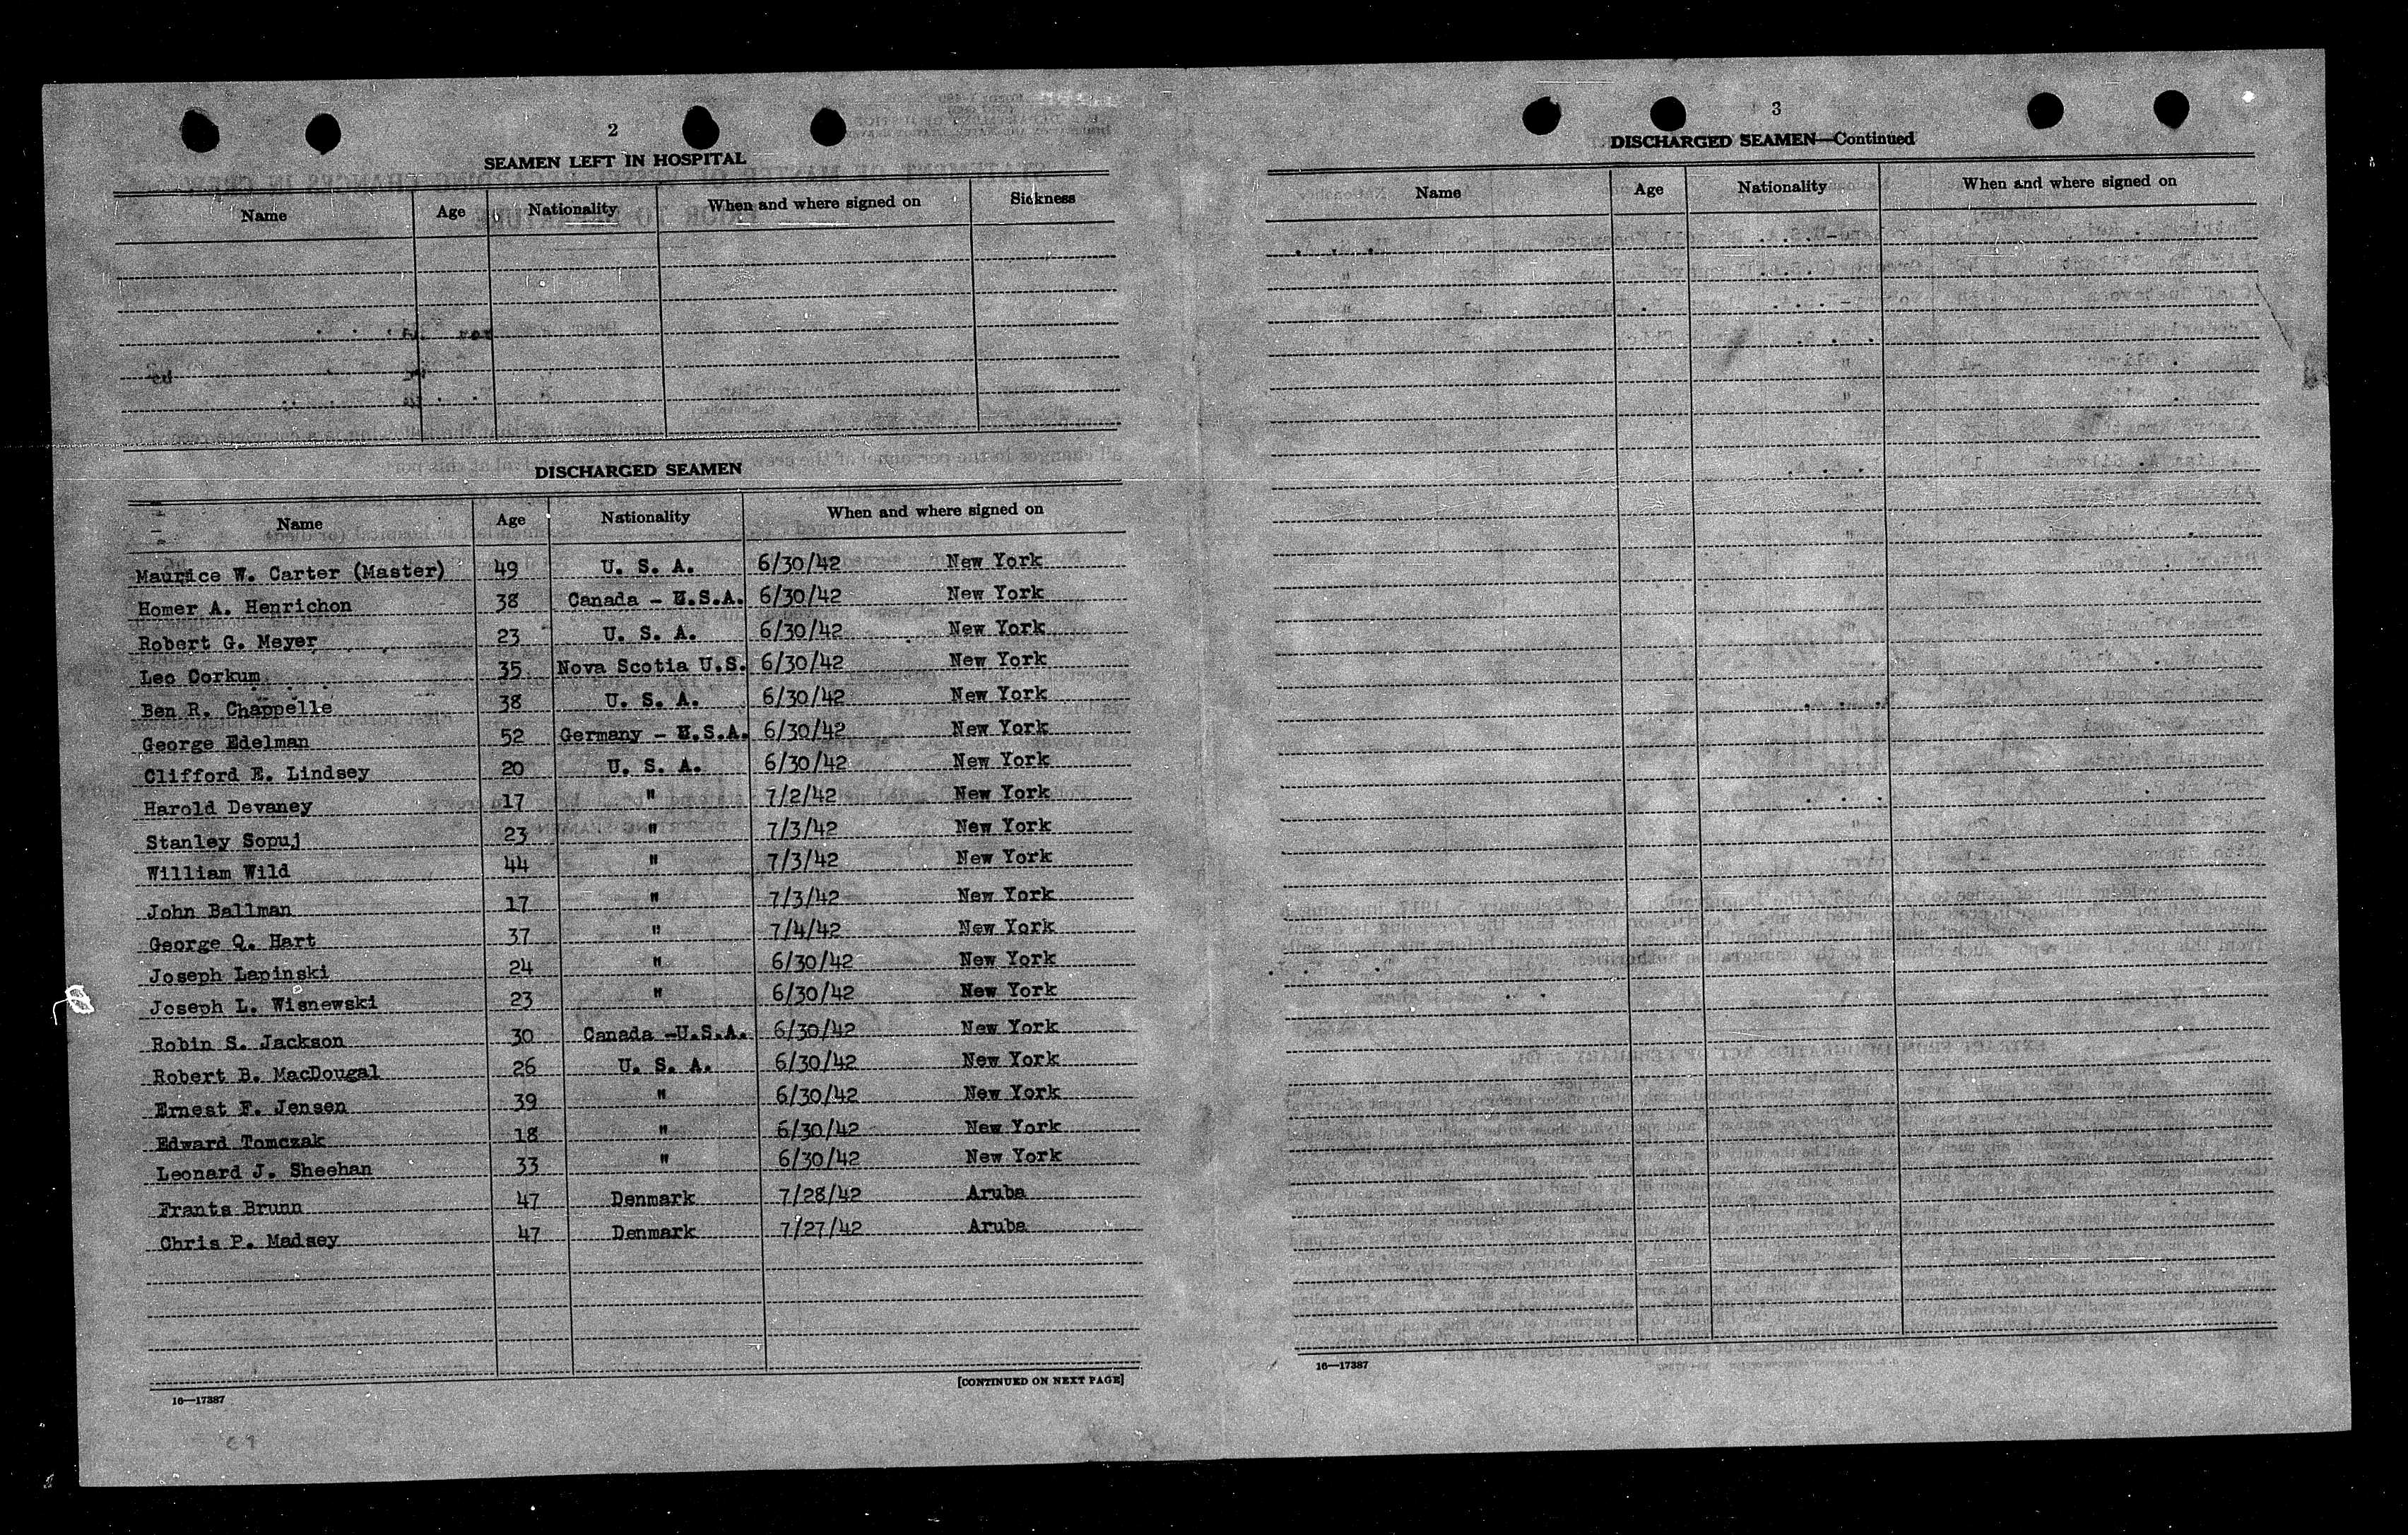 2
SEAMEN LEFT IN HOSPITAL
Name Age Nationality When and where signed on Sickness
DISCHARGED SEAMEN
Name Age Nationality When and where signed on
Maurice W. Carter (Master) 49 U. S. A. 6/30/42 New York
Homer A. Henrichon 38 Canada - U.S.A. 6/30/42 New York
Robert G. Meyer 23 U. S. A. 6/30/42 New York
Leo Corkum 35 Nova Scotia U.S. 6/30/42 New York
Ben R. Chappelle 38 U. S. A. 6/30/42 New York
George Edelman 52 Germany - U.S.A. 6/30/42 New York
Clifford E. Lindsey 20 U. S. A. 6/30/42 New York
Harold Devaney 17 " 7/2/42 New York
Stanley Sopuj 23 " 7/3/42 New York
William Wild 44 " 7/3/42 New York
John Ballman 17 " 7/3/42 New York
George Q. Hart 37 " 7/4/42 New York
Joseph Lapinski 24 " 6/30/42 New York
Joseph L. Wisnewski 23 " 6/30/42 New York
Robin S. Jackson 30 Canada -U.S.A. 6/30/42 New York
Robert B. MacDougal 26 U. S. A. 6/30/42 New York
Ernest F. Jensen 39 " 6/30/42 New York
Edward Tomczak 18 " 6/30/42 New York
Leonard J. Sheehan 33 " 6/30/42 New York
Frants Brunn 47 Denmark 7/28/42 Aruba
Chris P. Madsey 47 Denmark 7/27/42 Aruba
[CONTINUED ON NEXT PAGE]
16—17387
3
DISCHARGED SEAMEN—Continued
Name Age Nationality When and where signed on
16—17387